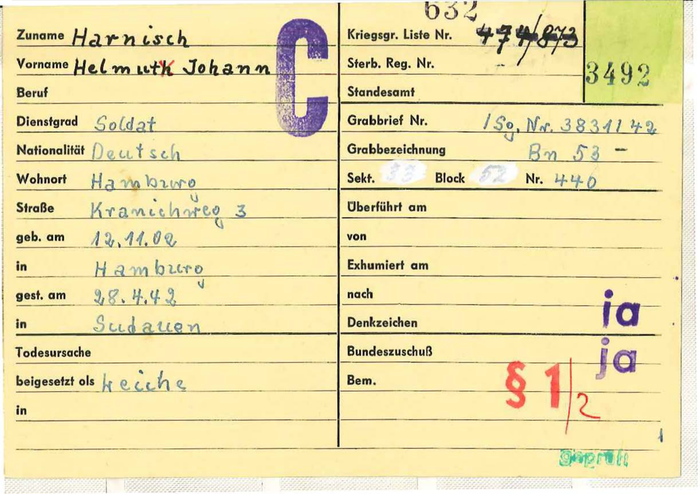 632
Zuname Harnisch
Vorname Helmuth Johann
Beruf
Dienstgrad Soldat
Nationalität Deutsch
Wohnort Hamburg
Straße Kranichweg 3
geb. am 12.11.02
in Hamburg
gest. am 28.4.42
in Sudauen
Todesursache
beigesetzt als Leiche
in
C
Kriegsgr. Liste Nr.
Sterb. Reg. Nr.
3492
Standesamt
Grabbrief Nr. Nr. 3831/42
Grabbezeichnung Bn 53 -
Sekt. 33 Block 52 Nr. 440
Überführt am
von
Exhumiert am
nach
Denkzeichen ja
Bundeszuschuß ja
Bem. § 1/2
geprüft